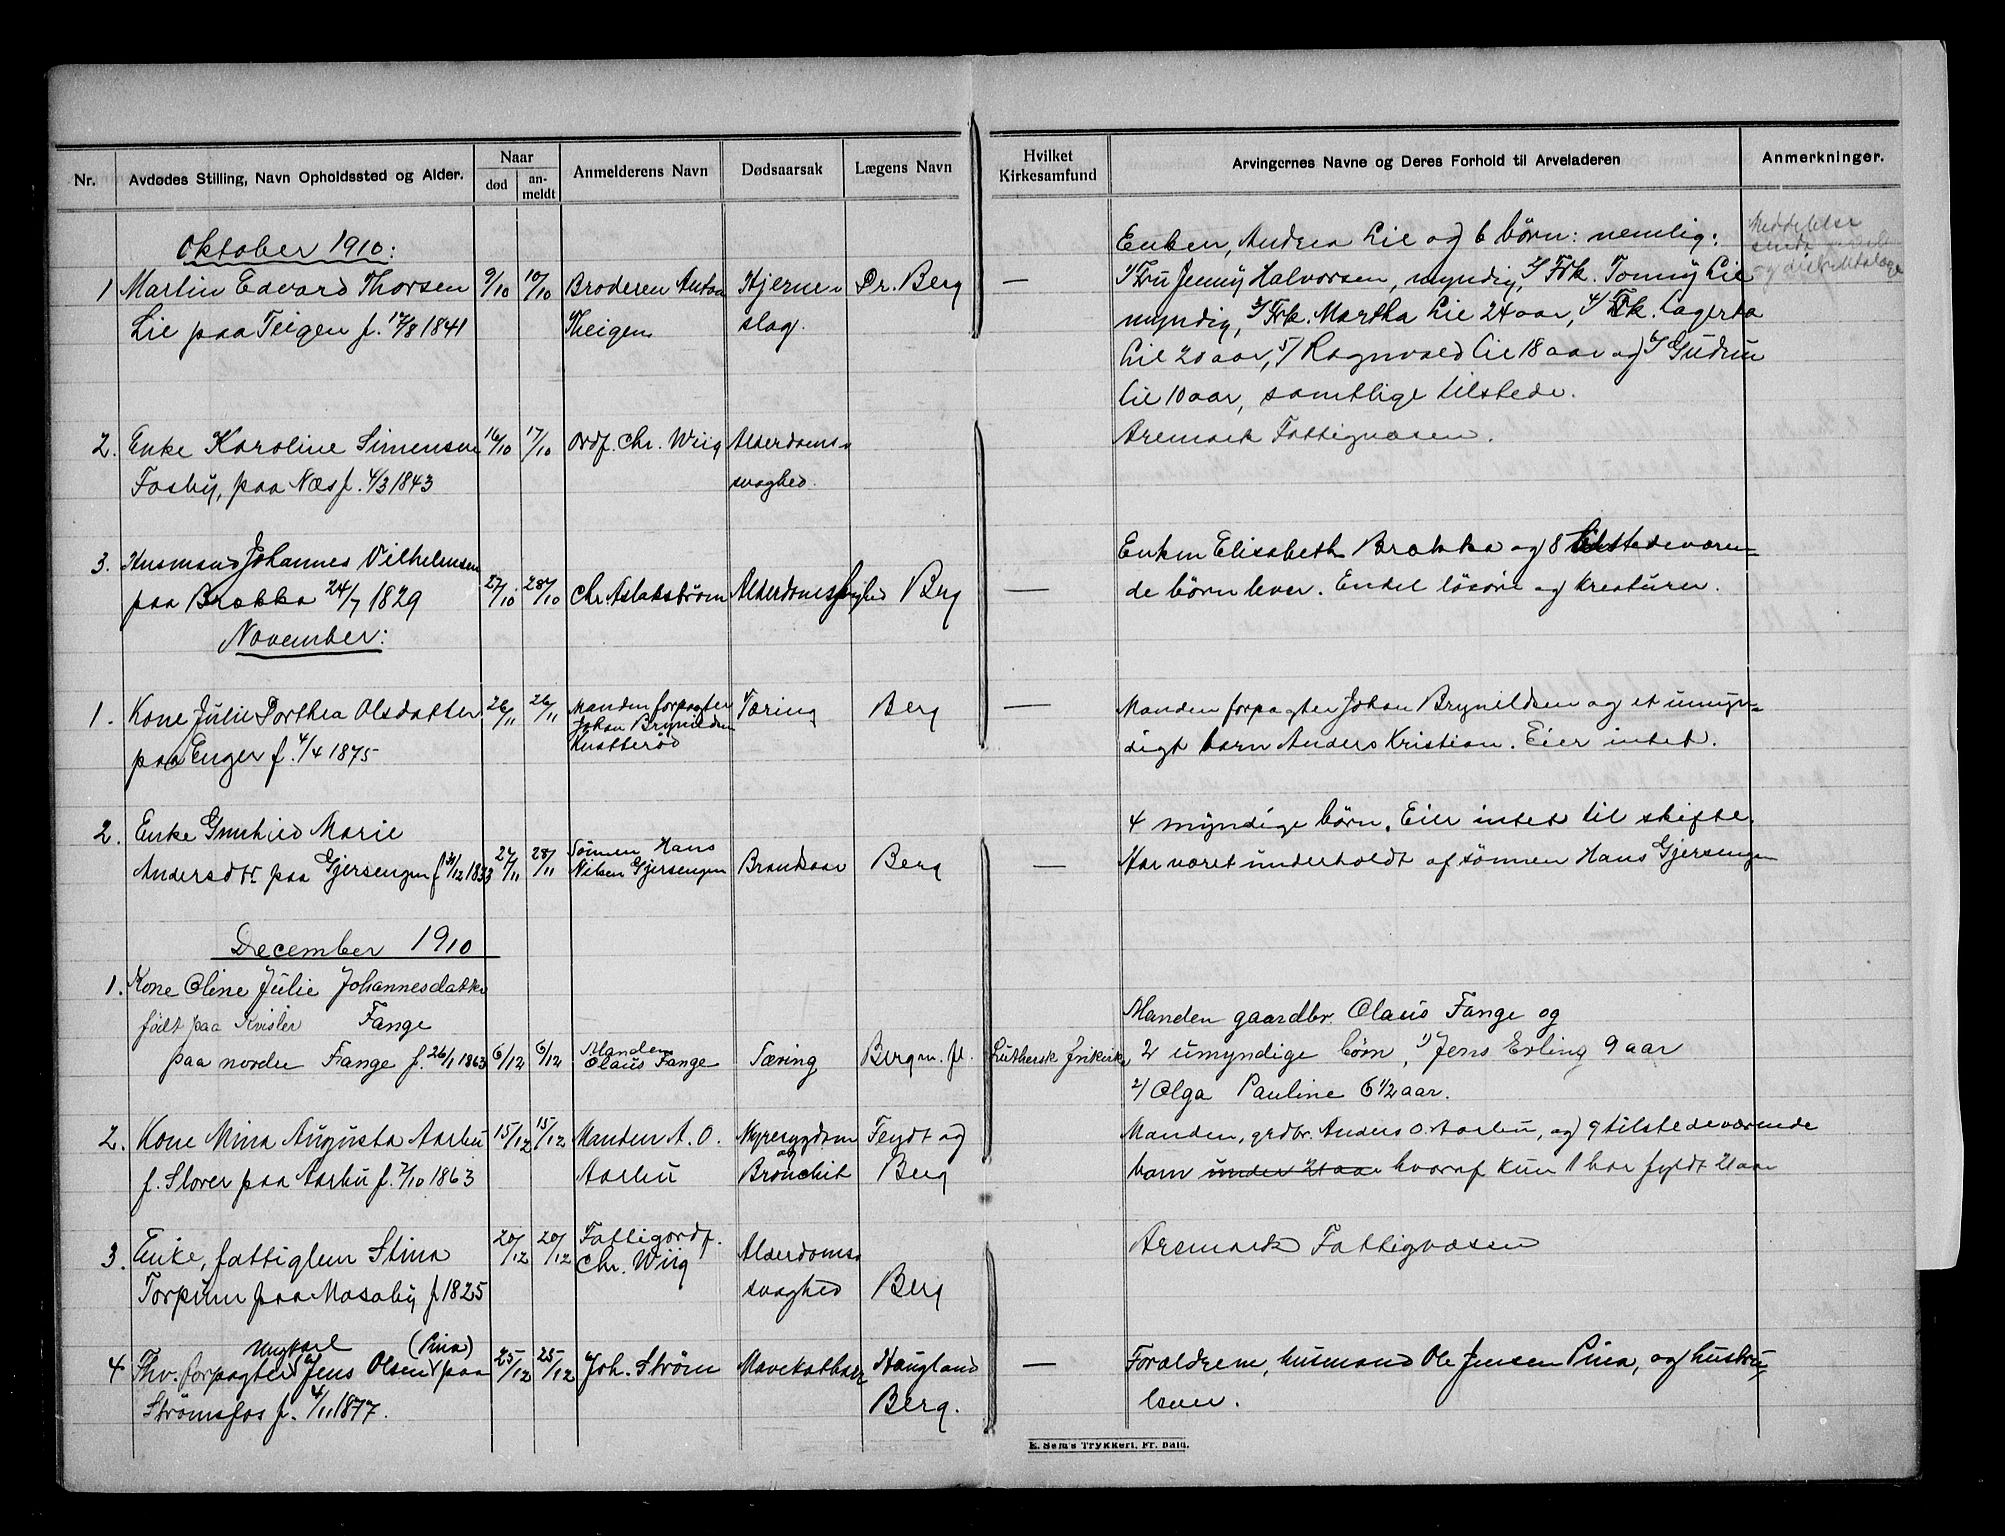 Nr.
Avdødes Stilling, Navn Opholdssted og Alder.
Naar
død
an-
meldt
Anmelderens Navn
Dødsaarsak
Lægens Navn
Hvilket
Kirkesamfund
Arvingernes Navne og Deres Forhold til Arveladeren
Anmerkninger.
Oktober 1910:
1 Martin Edvard Thorsen 9/10 10/10 Broderen Anton Hjerne- Dr. Berg —
Lie paa Teigen f. 12/8 1841 Theigen slag.
Enken, Andrea Lie og 6 börn: nemlig:
1/ Fru Jenny Halvorsen, myndig, 2/ Frk. Tonny Lie
myndig, 3/ Frk. Martha Lie 24 aar, 4/ Frk. Lagerta
Lie 20 aar, 5/ Ragnvald Lie 18 aar og 6/ Gudrun
Lie 10 aar, samtlige tilstede.
Meddelelse
sendt
2. Enke Karoline Simensen 16/10 17/10 Ordf. Chr. Wiig Alderdoms- Aremark Fattigvæsen.
Fosby, paa Næs f. 4/3 1843 svaghed.
3. Husmand Johannes Vilhelmsen
paa Brække 24/7 1829 27/10 28/10 Chr. Aslakstrøm Alderdomssvaghed Berg —
Enken Elisabeth Brække og 8 tilstedeværen-
de börn lever. Endel lösöre og kreaturer.
November:
1. Kone Julie Dorthea Olsdatter 26/11 26/11 Manden forpagter Tæring Berg —
Johan Brynildsen
paa Enger f. 4/4 1875 Knatterød
Manden forpagter Johan Brynildsen og et umyn-
digt barn Anders Kristian. Eier intet.
2. Enke Gunhild Marie
Andersdtr paa Gjersengen f 31/12 1833 27/11 28/11 Sönnen Hans
Nilsen Gjersengen Brandsaar Berg —
4 myndige börn. Eier intet til skifte.
Har været underholdt af sönnen Hans Gjersengen
December 1910
1. Kone Oline Julie Johannesdatter
født paa Kvisler Fange
paa nordre Fange f. 26/1 1863 6/12 6/12 Manden
Claus Fange Tæring Berg m. fl. Luthersk frikirke
Manden gaardbr. Claus Fange og
2 umyndige børn, 1) Jens Erling 9 aar
2/ Olga Pauline 6 1/2 aar.
2. Kone Mina Augusta Aarbu 15/12 15/12 Manden A. O. Nyresygdom Feydt og
og
f. Slorer paa Aarbu f. 7/10 1863 Aarbu Bronchit Berg
Manden, grdbr. Anders O. Aarbu, og 9 tilstedeværende
barn under 21 aar hvoraf kun 1 har fyldt 21 aar
3. Enke, fattiglem Stina 20/12 20/12 Fattigordf. Alderdoms-
Chr. Wiig
Torpum paa Mosaby f. 1825 svaghed Berg
Aremark Fattigvæsen
Ungkarl (Pina)
4 Thv. forpagter Jens Olsen paa 25/12 25/12 Joh. Strøm Mavekatharr Haugland —
Strømsfos f. 4/11 1877. Berg.
Forældrene, husmand Ole Jensen Pina, og hustru,
lever.
E. Sem's Trykkeri, Fr.hald.